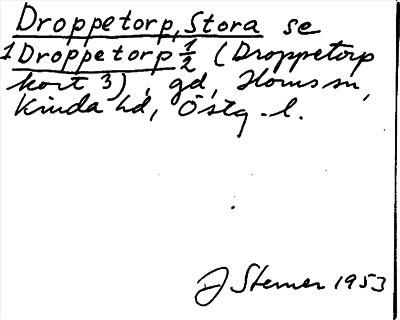 Droppetorp, Stora se
1 Droppetorp 1/2 (Droppetorp
kort 3), gd, Horns sn,
Kinda hd, Östg. l.
J Sterner 1953